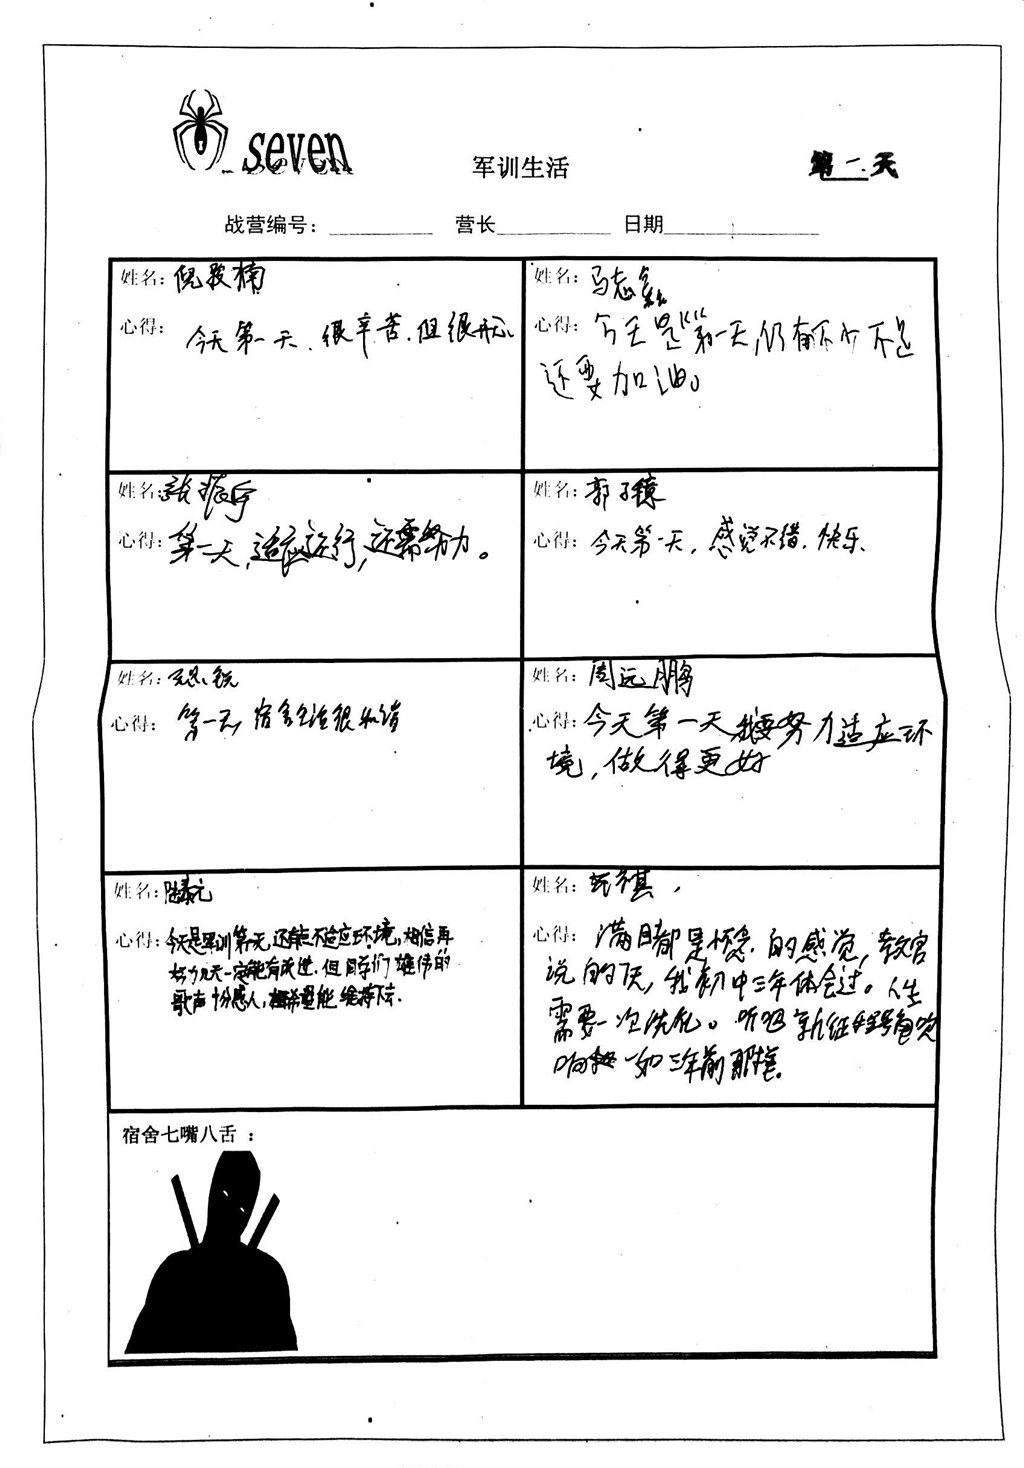 seven
军训生活
第一天
战营编号：
营长
日期
姓名：倪毅楠
心得：
今天第一天、很辛苦、但很开心
姓名：马志
心得：今天是第一天,仍有不少不足
还要加油。
姓名：张振宇
心得：第一天,适应运行,还需努力。
姓名：郭子
心得：今天第一天，感觉不错，快乐、
姓名：
心得：第一天,宿舍生活很不错
姓名：周远鹏
心得：今天第一天我要努力适应环
境，做得更好
姓名：陆泰元
心得：今天是军训第一天，还有点不适应环境，相信再
努力几天一定能有改进.但同学们雄伟的
歌声十分感人，希望能维持下去.
姓名：
心得：满目都是怀念的感觉，教官
说的历，我初中三年体会过。人生
需要一次洗礼。听吧新征程号角吹
响一如三年前那样.
宿舍七嘴八舌：